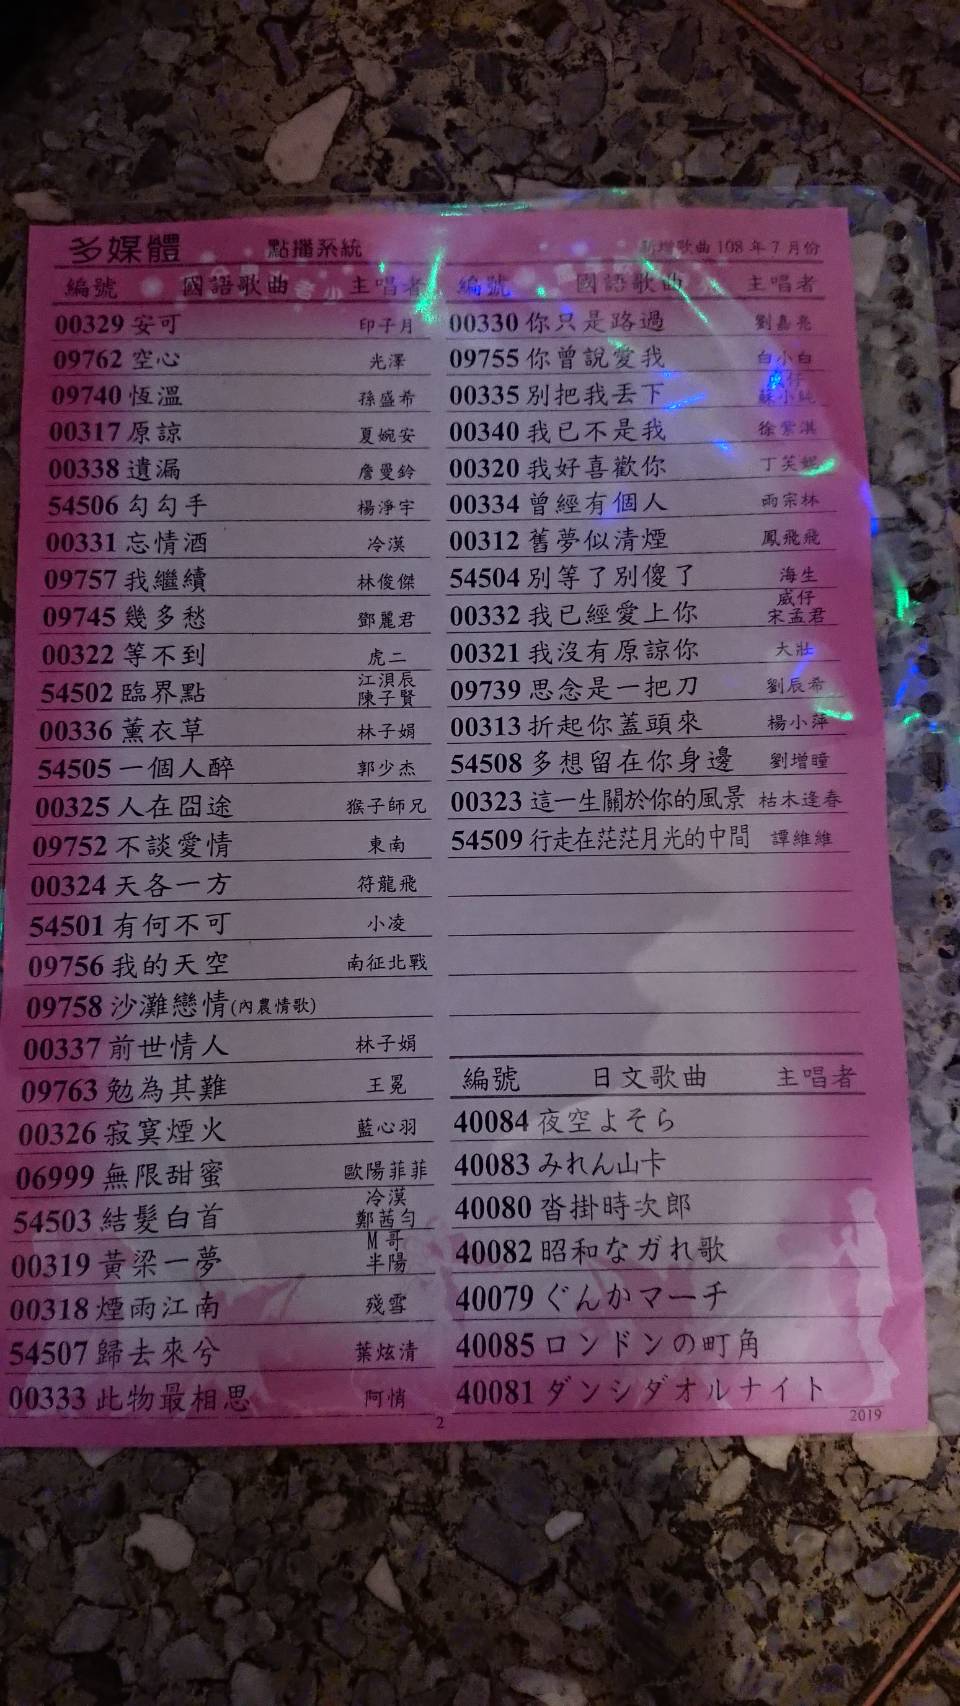 多媒體 點播系統 新增歌曲 108 年 7 月份
編號 國語歌曲 主唱者
00329 安可 印子月
09762 空心 光澤
09740 恆溫 孫盛希
00317 原諒 夏婉安
00338 遺漏 詹曼鈴
54506 勾勾手 楊淨宇
00331 忘情酒 冷漠
09757 我繼續 林俊傑
09745 幾多愁 鄧麗君
00322 等不到 虎二
54502 臨界點 江浿辰 陳子賢
00336 薰衣草 林子娟
54505 一個人醉 郭少杰
00325 人在囧途 猴子師兄
09752 不談愛情 東南
00324 天各一方 符龍飛
54501 有何不可 小凌
09756 我的天空 南征北戰
09758 沙灘戀情(內農情歌)
00337 前世情人 林子娟
09763 勉為其難 王冕
00326 寂寞煙火 藍心羽
06999 無限甜蜜 歐陽菲菲
54503 結髮白首 冷漠 鄭茜勻
00319 黃梁一夢 M哥 半陽
00318 煙雨江南 殘雪
54507 歸去來兮 葉炫清
00333 此物最相思 阿悄
編號 國語歌曲 主唱者
00330 你只是路過 劉嘉亮
09755 你曾說愛我 白小白
00335 別把我丟下 威仔 蘇小純
00340 我已不是我 徐紫淇
00320 我好喜歡你 丁芙妮
00334 曾經有個人 雨宗林
00312 舊夢似清煙 鳳飛飛
54504 別等了別傻了 海生
00332 我已經愛上你 威仔 宋孟君
00321 我沒有原諒你 大壯
09739 思念是一把刀 劉辰希
00313 折起你蓋頭來 楊小萍
54508 多想留在你身邊 劉增瞳
00323 這一生關於你的風景 枯木逢春
54509 行走在茫茫月光的中間 譚維維
編號 日文歌曲 主唱者
40084 夜空よそら
40083 みれん山卡
40080 沓掛時次郎
40082 昭和なガれ歌
40079 ぐんかマーチ
40085 ロンドンの町角
40081 ダンシダオルナイト
2
2019